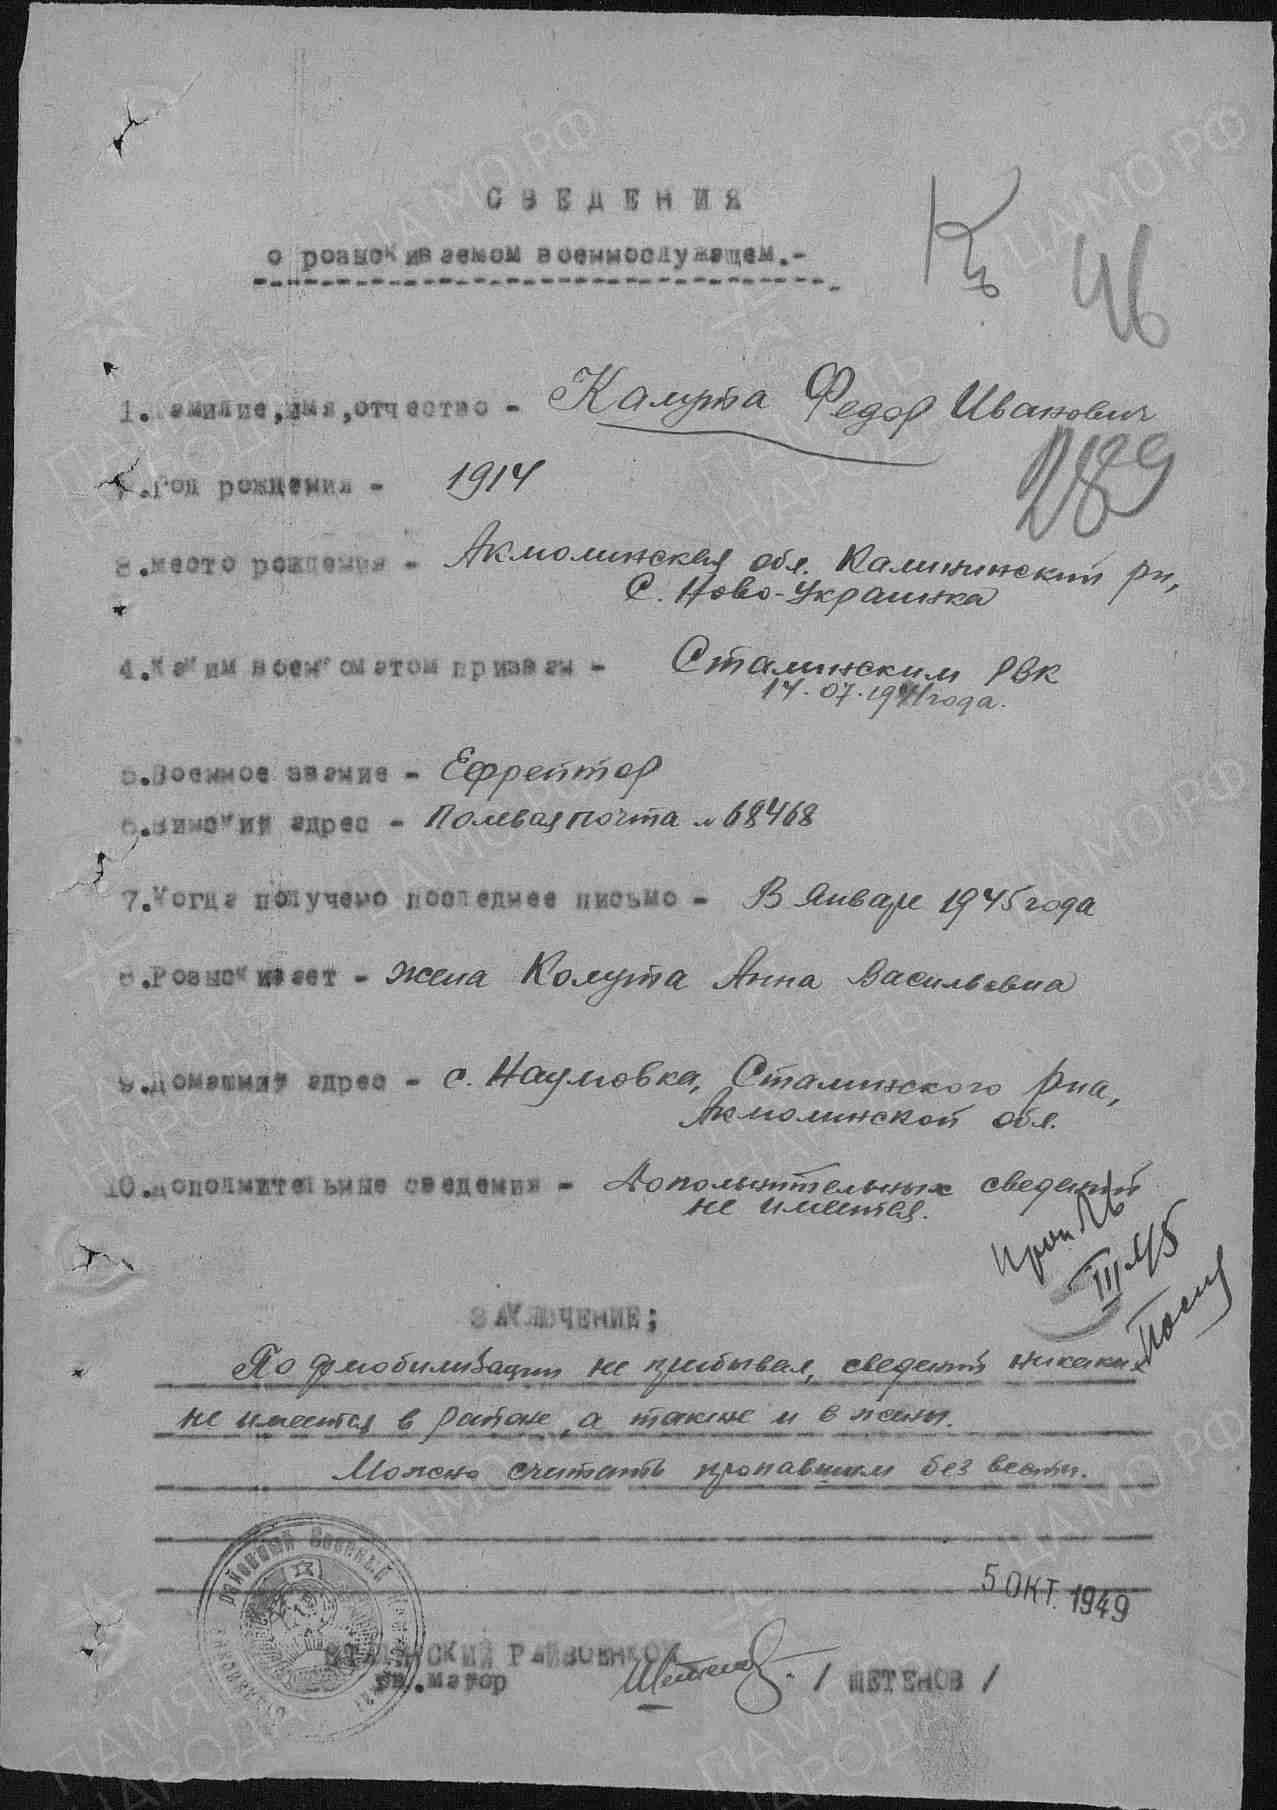 СВЕДЕНИЯ
о розыскиваемом военнослужащем.-
46
1.Фамилие,имя,отчество - Калута Федор Иванович
289
2.Год рождения - 1914
3.место рождения - Акмолинская обл. Калининский рн,
с. Ново-Украинка
4.Каким военкоматом призван - Сталинским РВК
14.07.1941 года.
5.Военное звание - Ефрейтор
6.Винский адрес - Полевая почта № 68468
7.Когда получено последнее письмо - В Январе 1945 года
8.Розыскивает - жена Колута Анна Васильевна
9.Домашний адрес - с. Наумовка, Сталинского р-на,
Акмолинской обл.
10.Дополнительные сведения - Дополнительных сведений
не имеется.
III 45
ЗАКЛЮЧЕНИЕ;
По демобилизации не прибывал, сведений никаких
не имеется в районе, а также и в жены.
Можно считать пропавшим без вести.
5 ОКТ. 1949
РАЙОННЫЙ ВОЕННЫЙ
СТАЛИНСКИЙ РАЙВОЕНКОМ
гв.майор / ШЕТЕНОВ /
ПАМЯТЬ НАРОДА
ЦАМО.РФ